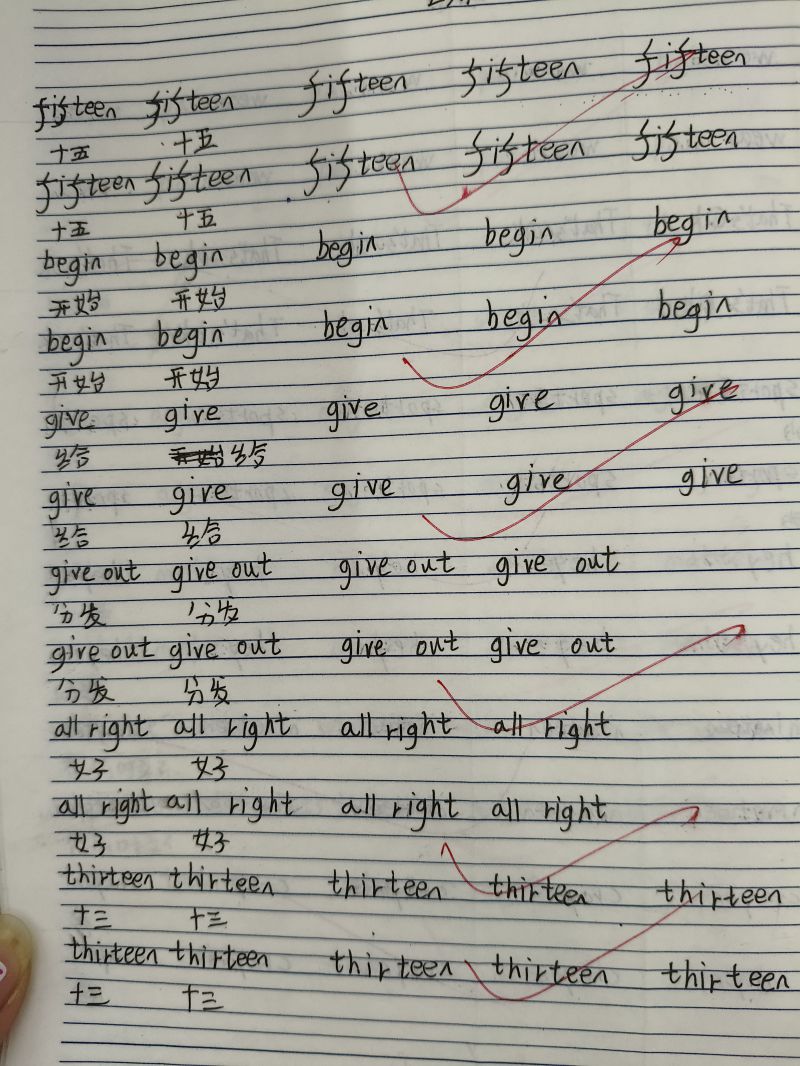 fifteen fifteen fifteen fifteen fifteen
十五 十五
fifteen fifteen fifteen fifteen fifteen
十五 十五
begin begin begin begin begin
开始 开始
begin begin begin begin begin
开始 开始
give give give give give
给 给
give give give give give
给 给
give out give out give out give out
分发 分发
give out give out give out give out
分发 分发
all right all right all right all right
好 好
all right all right all right all right
好 好
thirteen thirteen thirteen thirteen thirteen
十三 十三
thirteen thirteen thirteen thirteen thirteen
十三 十三